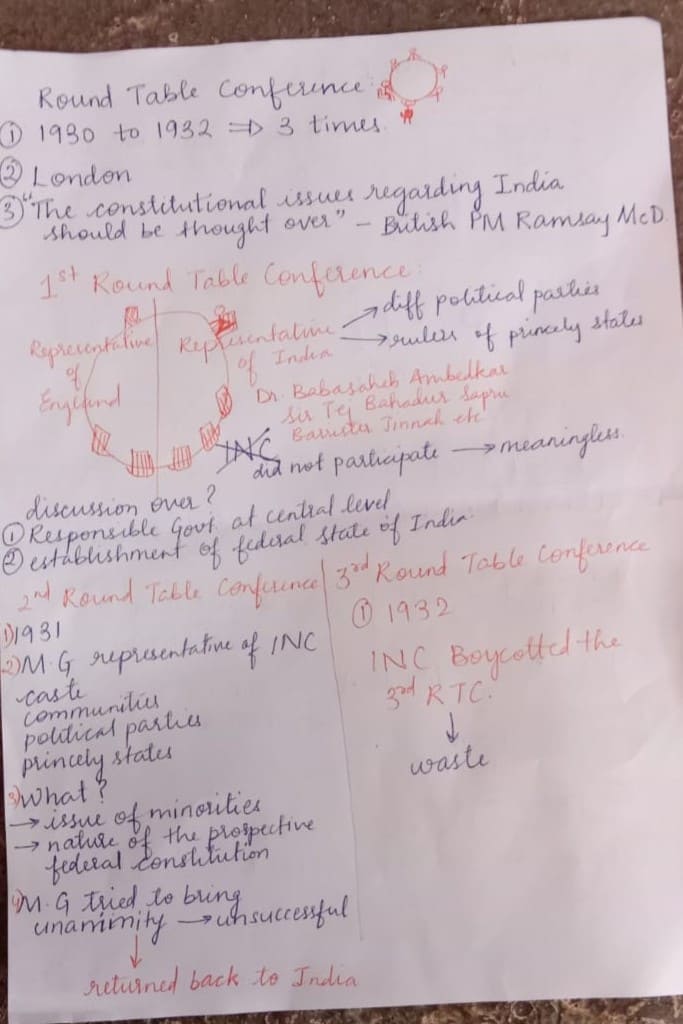 Round Table Conference:
① 1930 to 1932 ⇒ 3 times.
② London
③ "The constitutional issues regarding India
should be thought over" – British PM Ramsay McD.
1st Round Table Conference:
Representative
of
England
Representative
of India
→ diff political parties
→ rulers of princely states
Dr. Babasaheb Ambedkar
Sir Tej Bahadur Sapru
Barrister Jinnah etc
INC
did not participate → meaningless.
discussion over?
① Responsible Govt. at central level
② establishment of federal state of India
2nd Round Table Conference
1) 1931
2) M.G representative of INC
caste
communities
political parties
princely states
3) What?
→ issue of minorities
→ nature of the prospective
federal constitution
4) M.G tried to bring
unanimity → unsuccessful
↓
returned back to India
3rd Round Table Conference
① 1932
INC Boycotted the
3rd RTC.
↓
waste